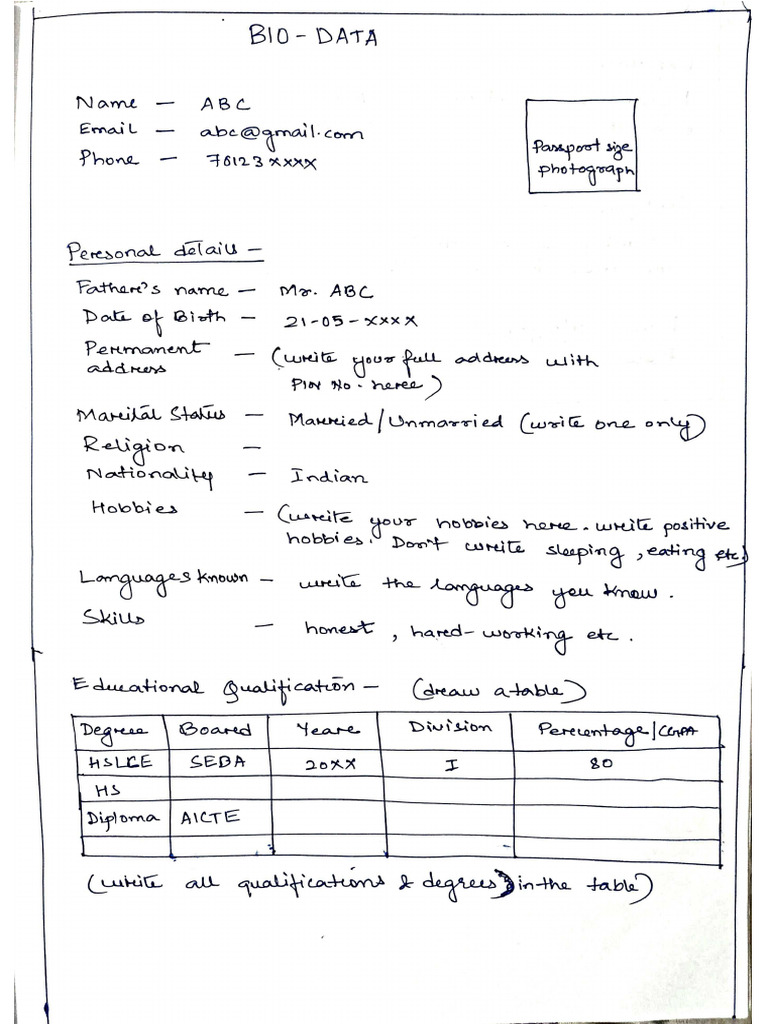 BIO-DATA
Name - ABC
Email - abc@gmail.com
Phone - 76123xxxx
Passport size
photograph
Personal details -
Father's name - Mr. ABC
Date of Birth - 21-05-xxxx
Permanent address - (write your full address with
PIN No. here)
Marital Status - Married/Unmarried (write one only)
Religion -
Nationality - Indian
Hobbies - (write your hobbies here. write positive
hobbies. Don't write sleeping, eating etc.)
Languages known - write the languages you know.
Skills - honest, hard-working etc.
Educational Qualification - (draw a table)
Degree Board Year Division Percentage/CGPA
HSLCE SEBA 20XX I 80
HS
Diploma AICTE
(write all qualifications & degrees in the table)